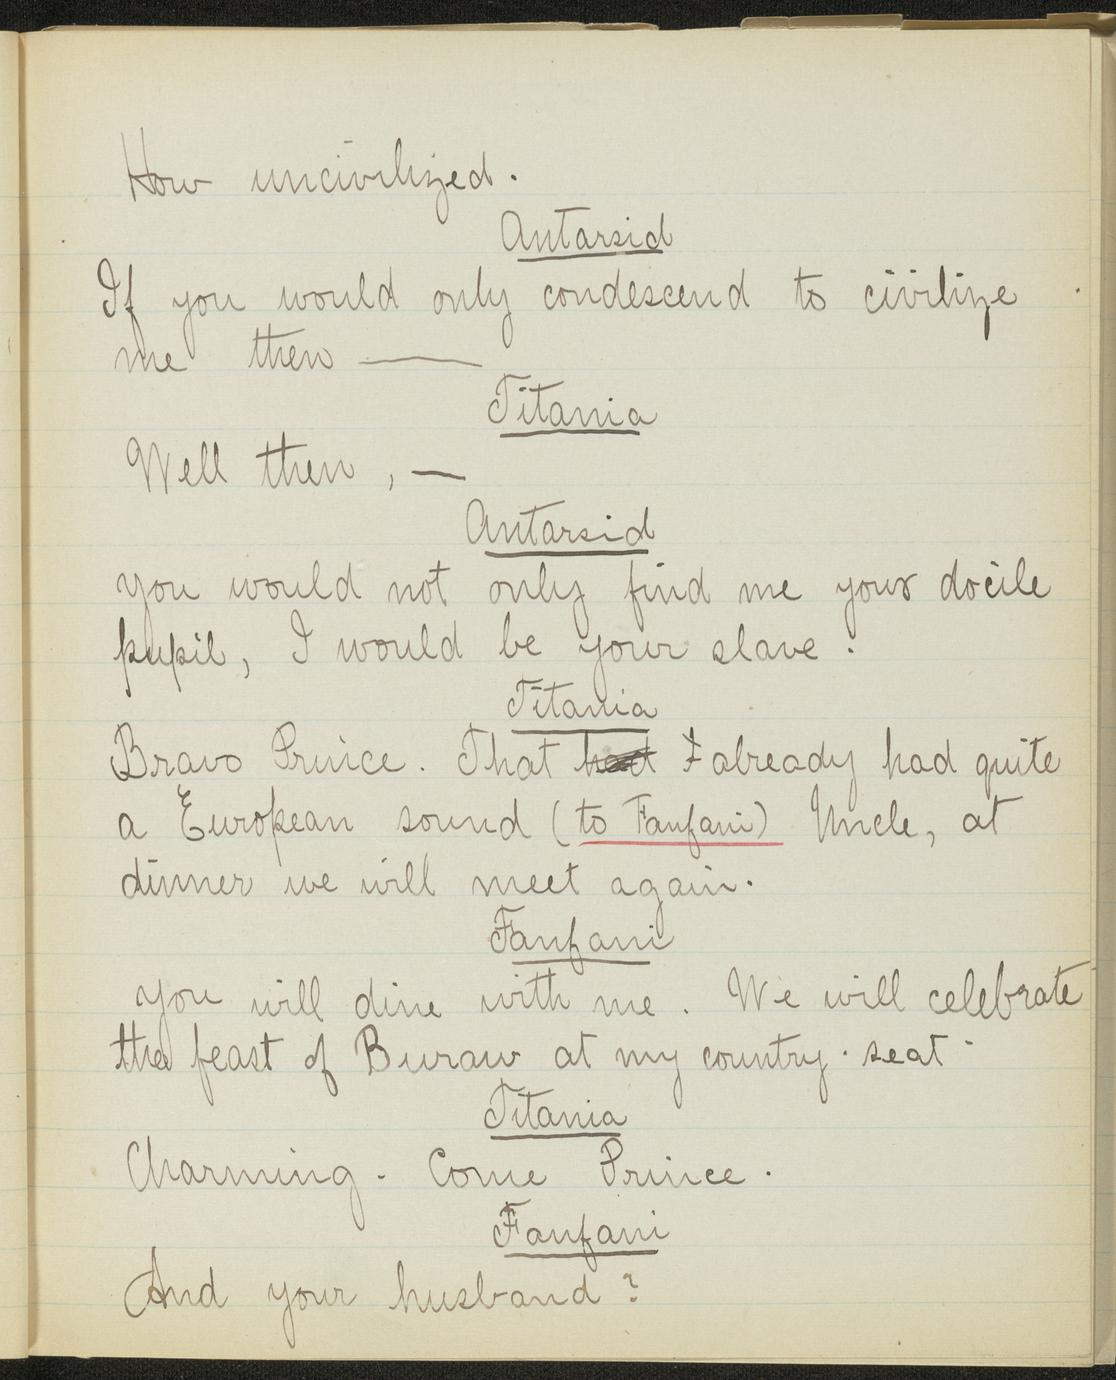 How uncivilized.
Antarsid
If you would only condescend to civilize
me then —
Titania
Well then, —
Antarsid
you would not only find me your docile
pupil, I would be your slave.
Titania
Bravo Prince. That already had quite
a European sound (to Fanfani) Uncle, at
dinner we will meet again.
Fanfani
you will dine with me. We will celebrate
the feast of Buraw at my country-seat-
Titania
Charming. Come Prince.
Fanfani
And your husband?